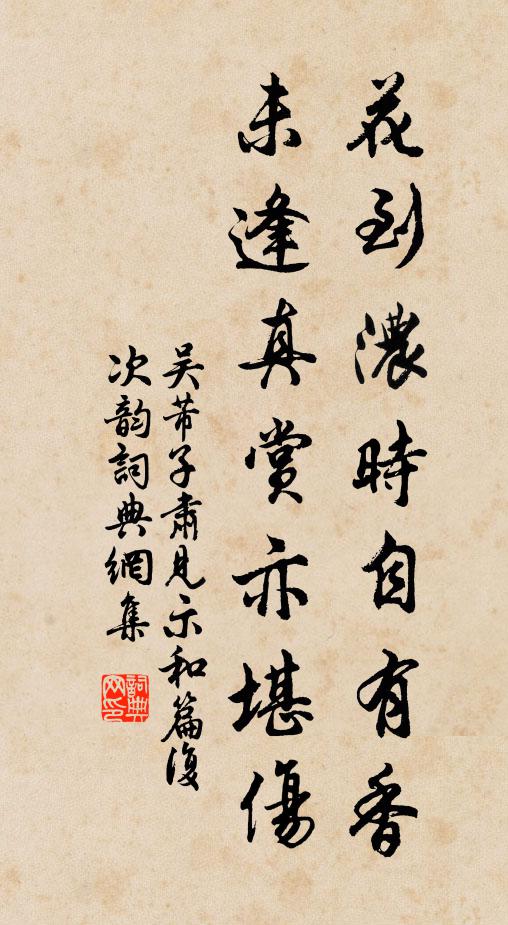 花到濃時自有香
未逢真賞亦堪傷
吴芾子肅見示和篇復
次韵詞典網集
詞典
网印